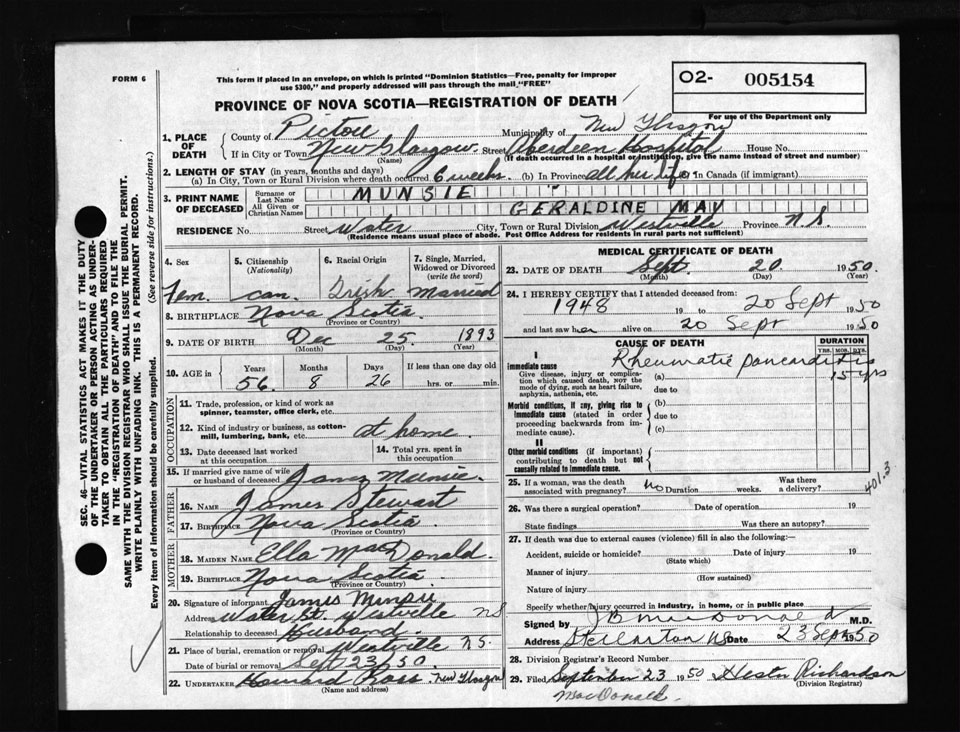 FORM 6
This form if placed in an envelope, on which is printed "Dominion Statistics—Free, penalty for improper
use $300," and properly addressed will pass through the mail "FREE"
O2- 005154
For use of the Department only
PROVINCE OF NOVA SCOTIA—REGISTRATION OF DEATH
1. PLACE OF DEATH
County of Pictou Municipality of New Glasgow
If in City or Town New Glasgow Street Aberdeen Hospital House No.
(Name) (If death occurred in a hospital or institution, give the name instead of street and number)
2. LENGTH OF STAY (in years, months and days)
(a) In City, Town or Rural Division where death occurred 6 weeks. (b) In Province all her life (c) In Canada (if immigrant)
3. PRINT NAME OF DECEASED
Surname or Last Name MUNSIE "
All Given or Christian Names GERALDINE MAY
RESIDENCE No. Street Water City, Town or Rural Division Westville Province N.S.
(Residence means usual place of abode. Post Office Address for residents in rural parts not sufficient)
4. Sex
Fem.
5. Citizenship
(Nationality)
Can.
6. Racial Origin
Irish
7. Single, Married,
Widowed or Divorced
(write the word)
Married
8. BIRTHPLACE Nova Scotia
(Province or Country)
9. DATE OF BIRTH Dec 25. 1893
(Month) (Day) (Year)
10. AGE in
Years Months Days If less than one day old
56. 8 26 hrs. or min.
OCCUPATION
11. Trade, profession, or kind of work as
spinner, teamster, office clerk, etc.
12. Kind of industry or business, as cotton-
mill, lumbering, bank, etc. at home.
13. Date deceased last worked
at this occupation
14. Total yrs. spent in
this occupation
15. If married give name of wife
or husband of deceased Munsie.
FATHER
16. NAME James Stewart
17. BIRTHPLACE Nova Scotia
(Province or Country)
MOTHER
18. MAIDEN NAME Ella MacDonald.
19. BIRTHPLACE Nova Scotia
(Province or Country)
20. Signature of informant James Munsie
Address Water St. Westville NS
Relationship to deceased Husband.
21. Place of burial, cremation or removal Westville N.S.
Date of burial or removal Sept 23/50.
22. UNDERTAKER Howard Ross. New Glasgow
(Name and address)
MEDICAL CERTIFICATE OF DEATH
23. DATE OF DEATH Sept. 20 1950.
(Month) (Day)
24. I HEREBY CERTIFY that I attended deceased from:
1948 19 to 20 Sept 1950
and last saw her alive on 20 Sept 1950
CAUSE OF DEATH
DURATION
YRS. MOS. DYS.
I
Immediate cause
Give disease, injury or complica-
tion which caused death, not the
mode of dying, such as heart failure,
asphyxia, asthenia, etc.
(a) Rheumatic pancarditis 15 yrs
due to
Morbid conditions, if any, giving rise to
immediate cause (stated in order
proceeding backwards from im-
mediate cause).
(b)
due to
(c)
II
Other morbid conditions (if important)
contributing to death but not
causally related to immediate cause.
401.3
25. If a woman, was the death
associated with pregnancy? No Duration weeks. Was there
a delivery?
26. Was there a surgical operation? Date of operation 19
State findings Was there an autopsy?
27. If death was due to external causes (violence) fill in also the following:
Accident, suicide or homicide? Date of injury 19
(State which)
Manner of injury
(How sustained)
Nature of injury
Specify whether injury occurred in industry, in home, or in public place
Signed by J B MacDonald M.D.
Address Stellarton NS Date 23 Sept 1950
28. Division Registrar's Record Number
29. Filed September 23 1950 Hester Richardson
MacDonald. (Division Registrar)
SEC. 46—VITAL STATISTICS ACT MAKES IT THE DUTY
OF THE UNDERTAKER OR PERSON ACTING AS UNDER-
TAKER TO OBTAIN ALL THE PARTICULARS REQUIRED
IN THE "REGISTRATION OF DEATH" AND TO FILE THE
SAME WITH THE DIVISION REGISTRAR WHO SHALL ISSUE THE BURIAL PERMIT.
WRITE PLAINLY WITH UNFADING INK. THIS IS A PERMANENT RECORD.
Every item of information should be carefully supplied. (See reverse side for instructions.)